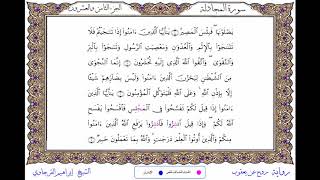 سورة المجادلة الجزء الثامن والعشرون
يَصْلَوْنَهَا فَبِئْسَ ٱلْمَصِيرُ ۝ يَٰٓأَيُّهَا ٱلَّذِينَ ءَامَنُوٓا۟ إِذَا تَنَٰجَيْتُمْ فَلَا
تَتَنَٰجَوْا۟ بِٱلْإِثْمِ وَٱلْعُدْوَٰنِ وَمَعْصِيَتِ ٱلرَّسُولِ وَتَنَٰجَوْا۟ بِٱلْبِرِّ
وَٱلتَّقْوَىٰ وَٱتَّقُوا۟ ٱللَّهَ ٱلَّذِىٓ إِلَيْهِ تُحْشَرُونَ ۝ إِنَّمَا ٱلنَّجْوَىٰ
مِنَ ٱلشَّيْطَٰنِ لِيَحْزُنَ ٱلَّذِينَ ءَامَنُوا۟ وَلَيْسَ بِضَآرِّهِمْ شَيْـًٔا
إِلَّا بِإِذْنِ ٱللَّهِ وَعَلَى ٱللَّهِ فَلْيَتَوَكَّلِ ٱلْمُؤْمِنُونَ ۝ يَٰٓأَيُّهَا ٱلَّذِينَ
ءَامَنُوٓا۟ إِذَا قِيلَ لَكُمْ تَفَسَّحُوا۟ فِى ٱلْمَجْلِسِ فَٱفْسَحُوا۟ يَفْسَحِ
ٱللَّهُ لَكُمْ وَإِذَا قِيلَ ٱنشِزُوا۟ فَٱنشِزُوا۟ يَرْفَعِ ٱللَّهُ ٱلَّذِينَ ءَامَنُوا۟
مِنكُمْ وَٱلَّذِينَ أُوتُوا۟ ٱلْعِلْمَ دَرَجَٰتٍ وَٱللَّهُ بِمَا تَعْمَلُونَ خَبِيرٌ ۝
رواية روح عن يعقوب الشيخ إبراهيم